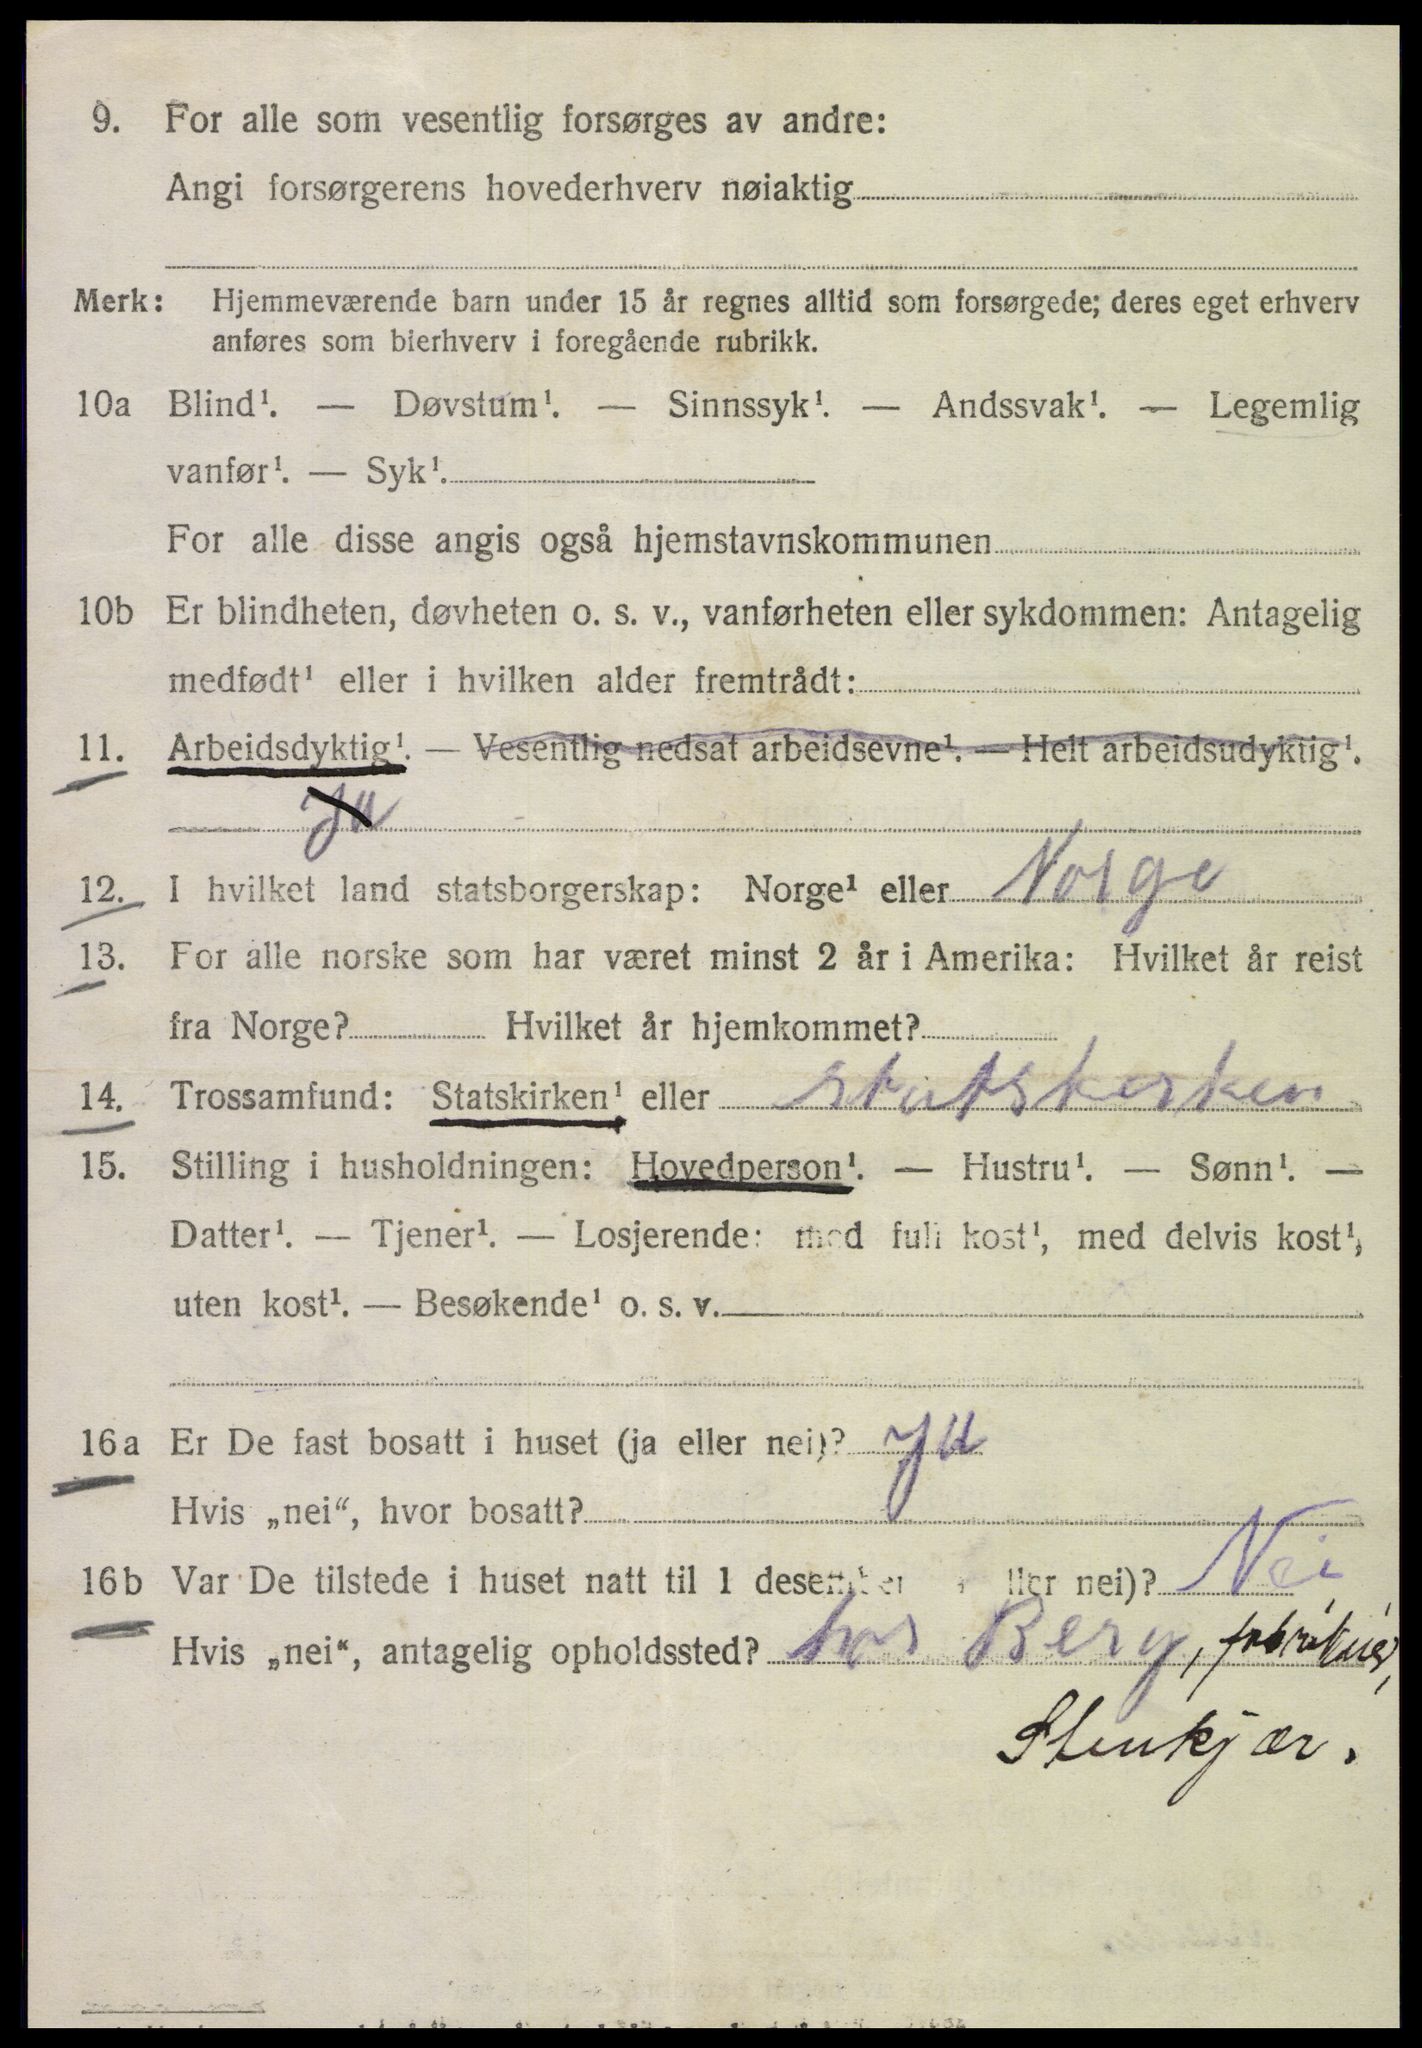 9. For alle som vesentlig forsørges av andre:
Angi forsørgerens hovederhverv nøiaktig
Merk: Hjemmeværende barn under 15 år regnes alltid som forsørgede; deres eget erhverv
anføres som bierhverv i foregående rubrikk.
10a Blind¹. — Døvstum¹. — Sinnssyk¹. — Andssvak¹. — Legemlig
vanfør¹. — Syk¹.
For alle disse angis også hjemstavnskommunen
10b Er blindheten, døvheten o. s. v., vanførheten eller sykdommen: Antagelig
medfødt¹ eller i hvilken alder fremtrådt:
11. Arbeidsdyktig¹. — Vesentlig nedsat arbeidsevne¹. — Helt arbeidsudyktig¹.
Ja
12. I hvilket land statsborgerskap: Norge¹ eller Norge
13. For alle norske som har været minst 2 år i Amerika: Hvilket år reist
fra Norge? Hvilket år hjemkommet?
14. Trossamfund: Statskirken¹ eller statskerken
15. Stilling i husholdningen: Hovedperson¹. — Hustru¹. — Sønn¹. —
Datter¹. — Tjener¹. — Losjerende: med full kost¹, med delvis kost¹,
uten kost¹. — Besøkende¹ o. s. v.
16a Er De fast bosatt i huset (ja eller nei)? Ja
Hvis „nei“, hvor bosatt?
16b Var De tilstede i huset natt til 1 desember ller nei)? Nei
Hvis „nei“, antagelig opholdssted? hos Berg,
Stenkjær.